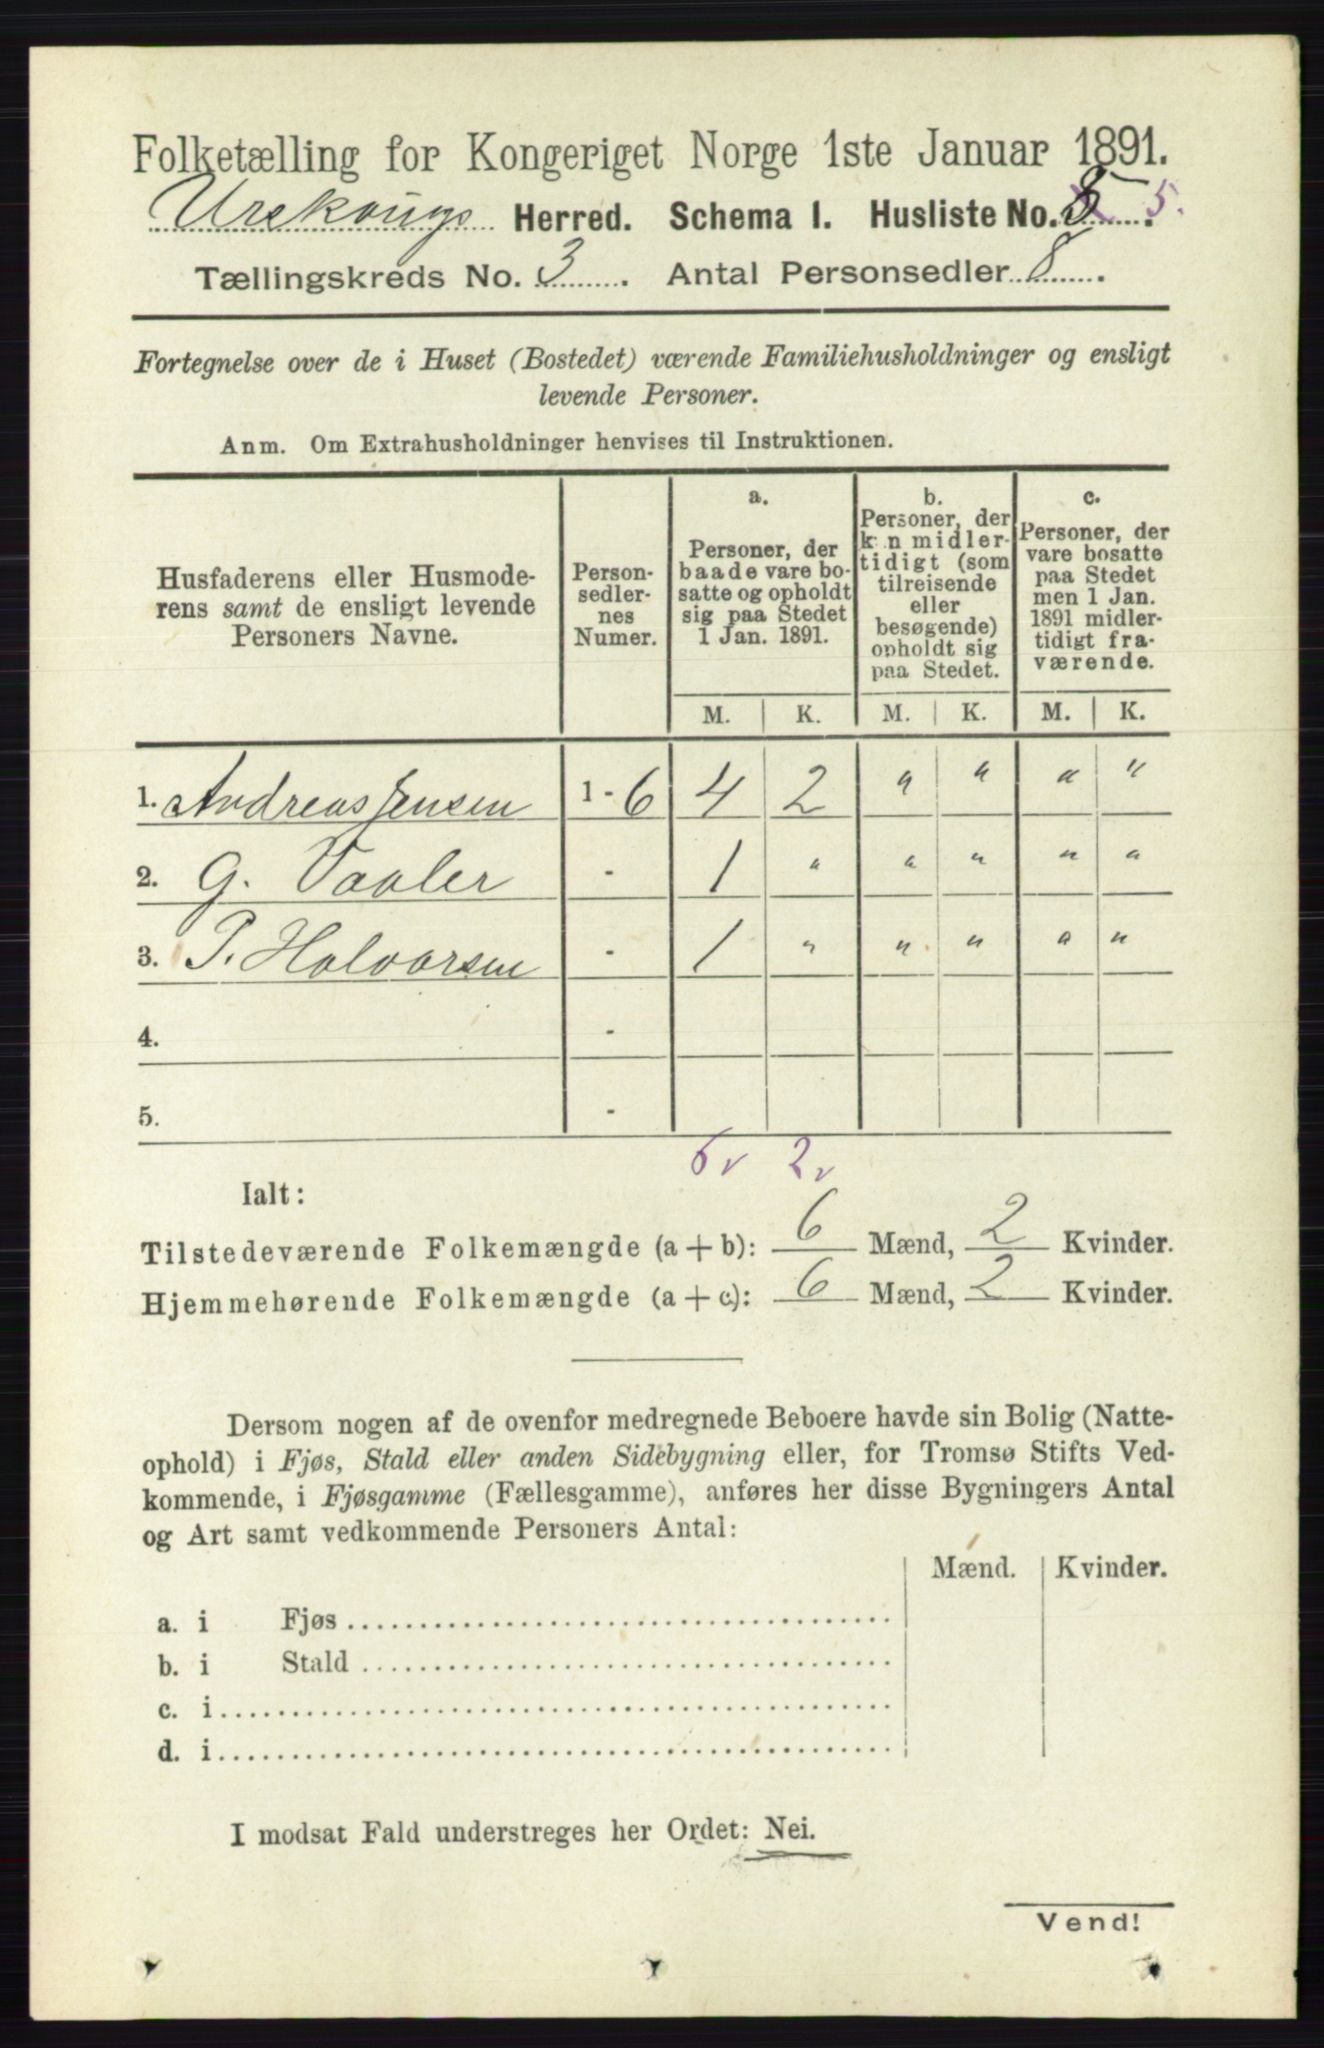 Folketælling for Kongeriget Norge 1ste Januar 1891.
Urskougs Herred. Schema 1. Husliste No. 5. 5.
Tællingskreds No. 3. Antal Personsedler 8.
Fortegnelse over de i Huset (Bostedet) værende Familiehusholdninger og ensligt
levende Personer.
Anm. Om Extrahusholdninger henvises til Instruktionen.
Husfaderens eller Husmode-
rens samt de ensligt levende
Personers Navne.
Person-
sedler-
nes
Numer.
a.
Personer, der
baade vare bo-
satte og opholdt
sig paa Stedet
1 Jan. 1891.
b.
Personer, der
kun midler-
tidigt (som
tilreisende
eller
besøgende)
opholdt sig
paa Stedet.
c.
Personer, der
vare bosatte
paa Stedet
men 1 Jan.
1891 midler-
tidigt fra-
værende.
M. K. M. K. M. K.
1. Andreas Jensen 1 - 6 4 2 " " " "
2. G. Vaaler - 1 " " " " "
3. P. Halvorsen - 1 " " " " "
4. -
5. -
6 v 2 v
Ialt:
Tilstedeværende Folkemængde (a + b): 6 Mænd, 2 Kvinder.
Hjemmehørende Folkemængde (a + c): 6 Mænd, 2 Kvinder.
Dersom nogen af de ovenfor medregnede Beboere havde sin Bolig (Natte-
ophold) i Fjøs, Stald eller anden Sidebygning eller, for Tromsø Stifts Ved-
kommende, i Fjøsgamme (Fællesgamme), anføres her disse Bygningers Antal
og Art samt vedkommende Personers Antal:
Mænd. Kvinder.
a. i Fjøs
b. i Stald
c. i
d. i
I modsat Fald understreges her Ordet: Nei.
Vend!